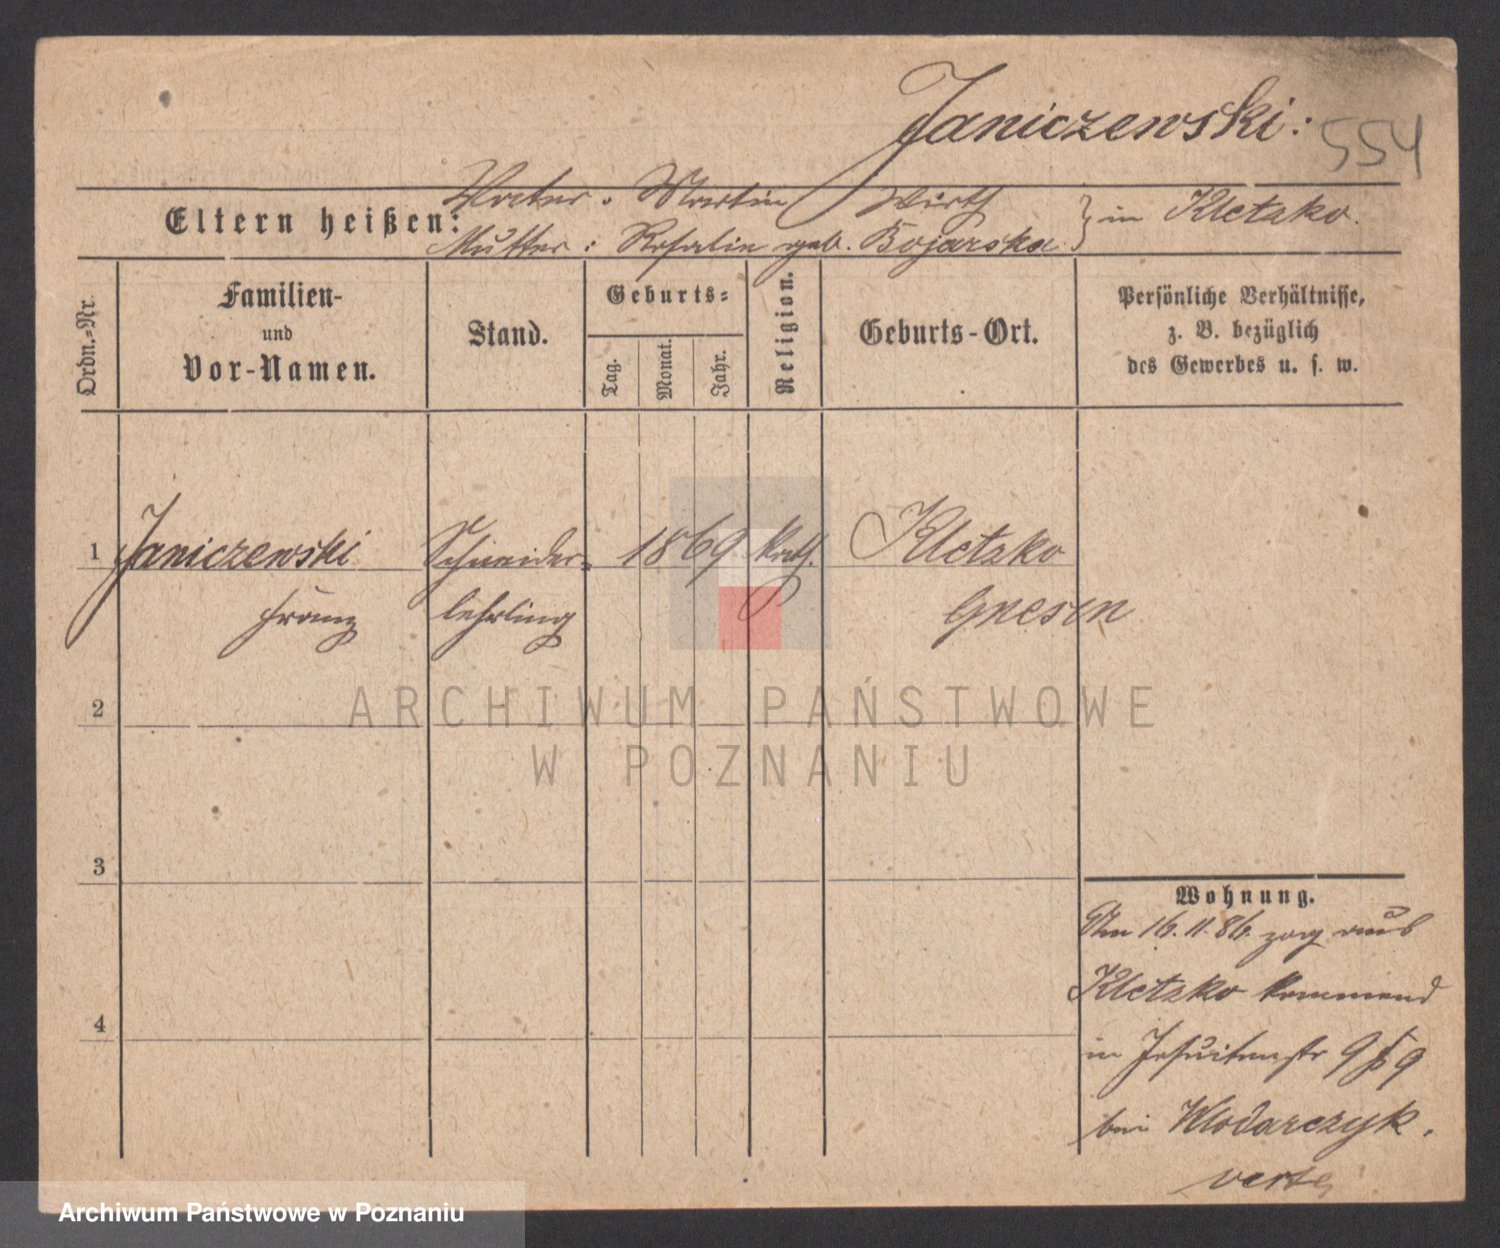 Janiczewski: 554
Vater: Martin Wirth
Eltern heißen: } in Kletzko.
Mutter: Rosalie geb. Bojarska
Ordn.-Nr.
Familien-
und
Vor-Namen.
Stand.
Geburts-
Tag.
Monat.
Jahr.
Religion.
Geburts-Ort.
Persönliche Verhältnisse,
z. B. bezüglich
des Gewerbes u. s. w.
1 Janiczewski Schneider- 1869 kath. Kletzko
Franz lehrling Gnesen
2
ARCHIWUM PAŃSTWOWE
W POZNANIU
3
4
Wohnung.
Am 16.11.86. zog aus
Kletzko kommend
in Jesuitenstr 9 9
bei Wlodarczyk.
verte
Archiwum Państwowe w Poznaniu